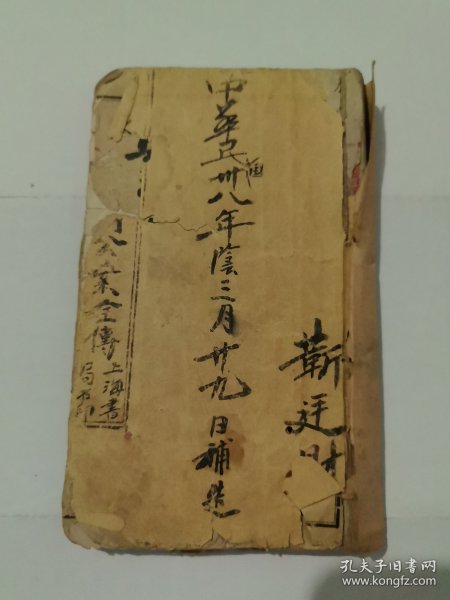 靳廷財
中華民國卅八年陰三月廿九日補造
公案全傳
上海書
局石印
孔夫子旧书网
www.kongfz.com